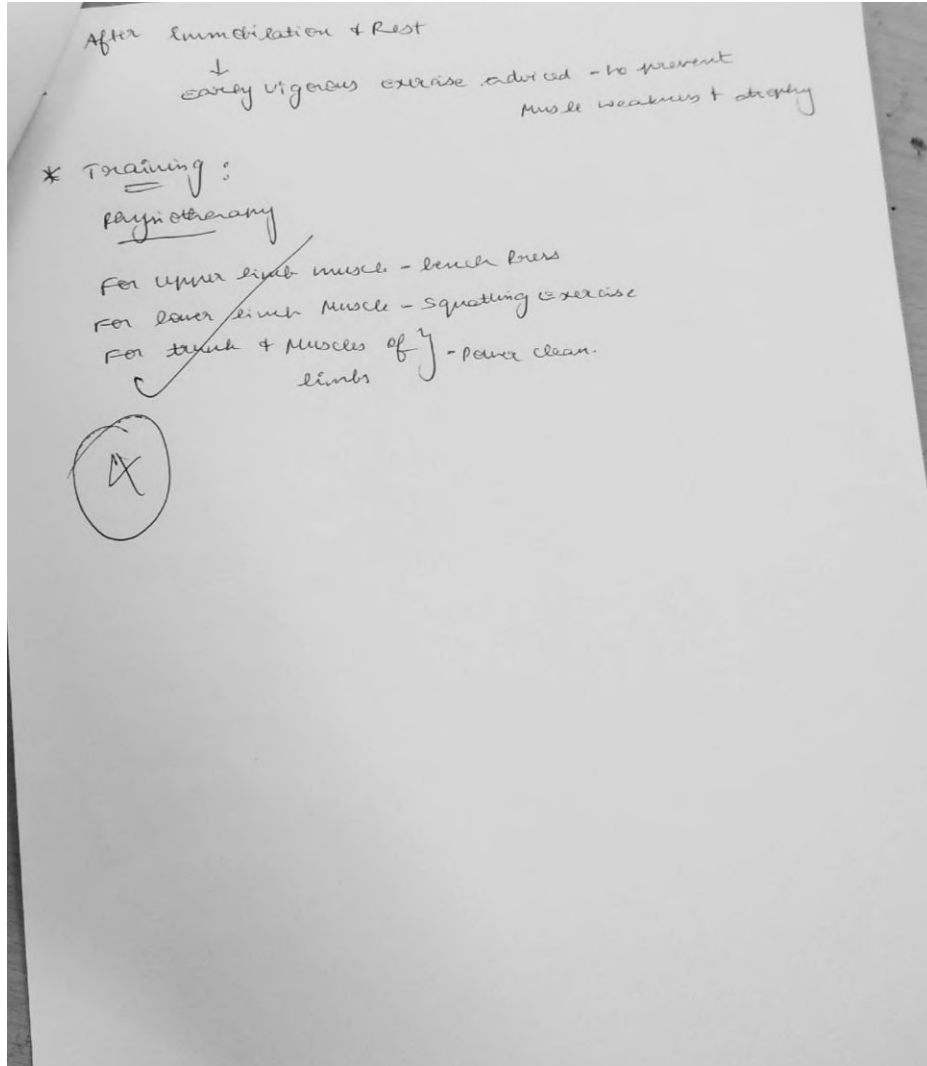 After Immobilation & Rest
↓
early vigerous exercise adviced - to prevent
Muscle weakness & atrophy
* Training :
physiotherapy
For upper limb muscle - bench Press
For lower limb Muscle - Squatting Exercise
For trunk & Muscles of } - Power clean.
limbs
4